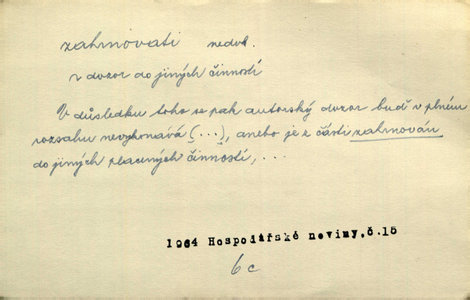 zahrnovati nedok.
~ dozor do jiných činností
V důsledku toho se pak autorský dozor buď v plném
rozsahu nevykonává (...), anebo je z části zahrnován
do jiných placených činností, ...
1964 Hospodářské noviny,č.15
6c